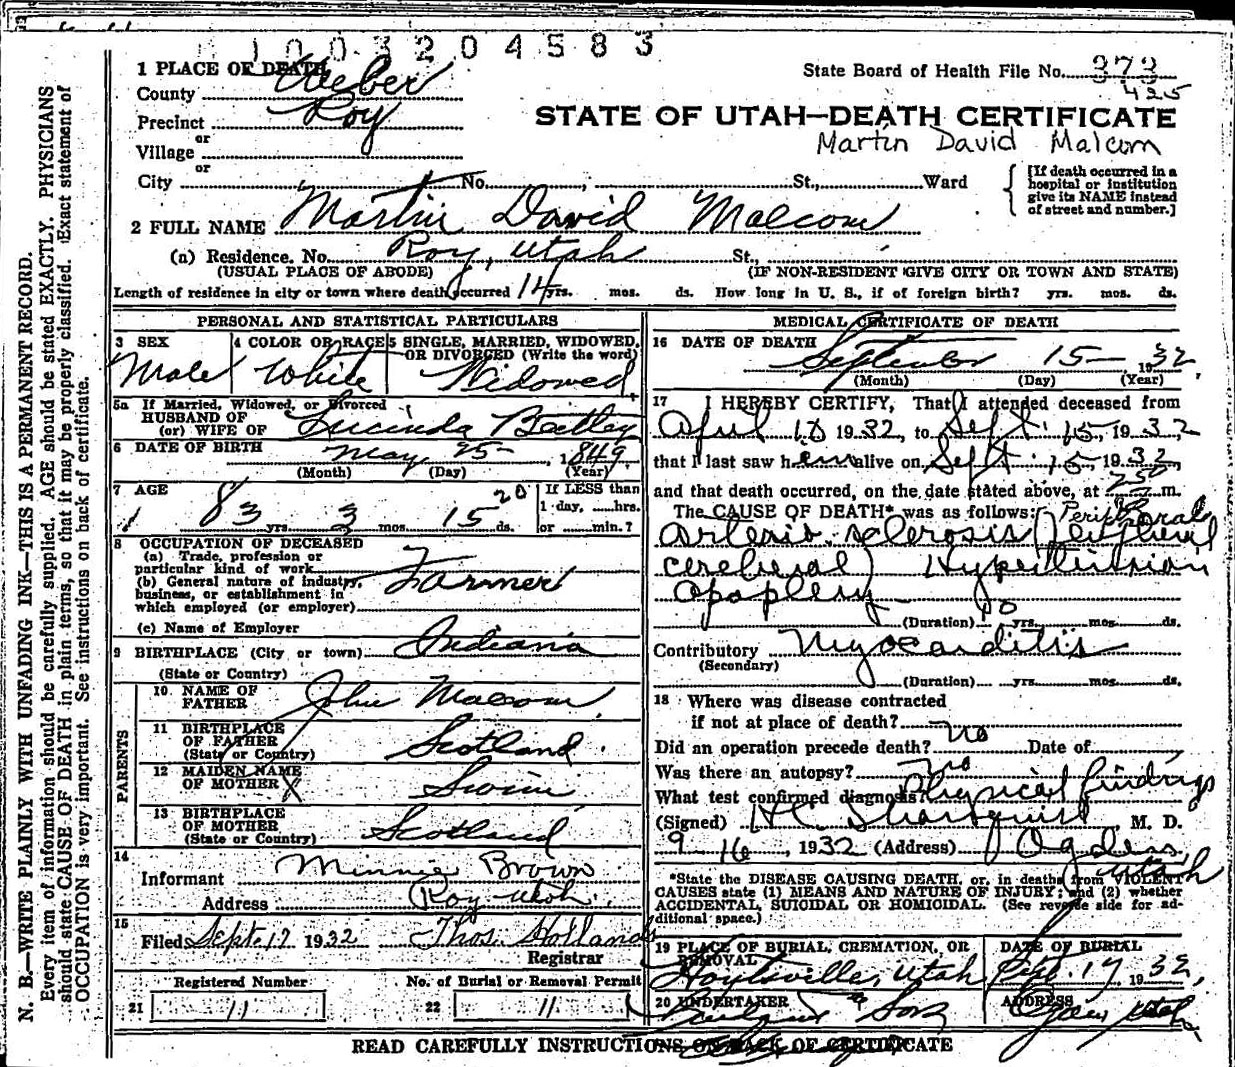 1003204583
1 PLACE OF DEATH
State Board of Health File No. 373
425
County Weber
Precinct Roy
STATE OF UTAH—DEATH CERTIFICATE
or
Village
Martin David Malcom
or
City No. , St., Ward
[If death occurred in a hospital or institution give its NAME instead of street and number.]
2 FULL NAME Martin David Malcom
(a) Residence. No. Roy, Utah St.,
(USUAL PLACE OF ABODE) (IF NON-RESIDENT GIVE CITY OR TOWN AND STATE)
Length of residence in city or town where death occurred 14 yrs. mos. ds. How long in U. S., if of foreign birth? yrs. mos. ds.
PERSONAL AND STATISTICAL PARTICULARS
3 SEX 4 COLOR OR RACE 5 SINGLE, MARRIED, WIDOWED, OR DIVORCED (Write the word)
Male White Widowed
5a If Married, Widowed, or Divorced
HUSBAND OF
(or) WIFE OF Lucinda
6 DATE OF BIRTH May 25 1849
(Month) (Day) (Year)
7 AGE If LESS than
20 1 day, hrs.
83 yrs. 3 mos. 15 ds. or min.?
8 OCCUPATION OF DECEASED
(a) Trade, profession or
particular kind of work
(b) General nature of industry,
business, or establishment in
which employed (or employer) Farmer
(c) Name of Employer
9 BIRTHPLACE (City or town) Indiana
(State or Country)
PARENTS
10 NAME OF
FATHER John Malcom
11 BIRTHPLACE
OF FATHER
(State or Country) Scotland
12 MAIDEN NAME
OF MOTHER X Swim
13 BIRTHPLACE
OF MOTHER
(State or Country) Scotland
14
Informant Minnie Brown
Address Roy Utah
15
Filed Sept. 17 1932 Thos. Holland
Registrar
Registered Number No. of Burial or Removal Permit
21 11 22 11
MEDICAL CERTIFICATE OF DEATH
16 DATE OF DEATH
September 15 1932
(Month) (Day) (Year)
17 I HEREBY CERTIFY, That I attended deceased from
April 10 1932, to Sept. 15, 1932
that I last saw him alive on Sept. 15, 1932,
and that death occurred, on the date stated above, at 250 m.
The CAUSE OF DEATH* was as follows: Peripheral
Arterio sclerosis (Peripheral
cerebral) Hypertension
Apoplexy
(Duration) 10 yrs. mos. ds.
Contributory Myocarditis
(Secondary)
(Duration) yrs. mos. ds.
18 Where was disease contracted
if not at place of death?
Did an operation precede death? no Date of
Was there an autopsy? no
What test confirmed diagnosis? Physical findings
(Signed) M. D.
9 16, 1932 (Address) Ogden, Utah
*State the DISEASE CAUSING DEATH, or, in deaths from VIOLENT
CAUSES state (1) MEANS AND NATURE OF INJURY; and (2) whether
ACCIDENTAL, SUICIDAL OR HOMICIDAL. (See reverse side for ad-
ditional space.)
19 PLACE OF BURIAL, CREMATION, OR REMOVAL DATE OF BURIAL
Hoytsville, Utah Sept. 17 1932,
20 UNDERTAKER ADDRESS
& Sons Ogden Utah
READ CAREFULLY INSTRUCTIONS ON BACK OF CERTIFICATE
N. B.—WRITE PLAINLY WITH UNFADING INK—THIS IS A PERMANENT RECORD.
Every item of information should be carefully supplied. AGE should be stated EXACTLY. PHYSICIANS
should state CAUSE OF DEATH in plain terms, so that it may be properly classified. Exact statement of
OCCUPATION is very important. See instructions on back of certificate.